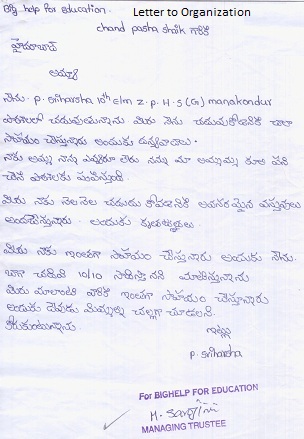 Big help for education.
Letter to Organization
chand pasha shaik గారికి
హైదరాబాద్
అయ్యా
నేను. p. sriharsha 10th e/m z.p.H.s (G) manakondur
పాఠశాలలో చదువుతున్నాను. మీరు నేను చదువుకోడానికి చాలా
సహాయం చేస్తున్నారు అందుకు ధన్యవాదాలు.
నాకు అమ్మ నాన్న ఎవ్వరూ లేరు. నన్ను మా అమ్మమ్మ కూలి పని
చేసి పాఠశాలకు పంపిస్తుంది.
మీరు నాకు నెల నెల చదువు కోవడానికి అవసరమైన వస్తువులు
అందచేస్తున్నారు. అందుకు కృతజ్ఞతలు.
మీరు నాకు ఇంతగా సహాయం చేస్తున్నారు అందుకు నేను.
బాగా చదివి 10/10 సాధిస్తానని మాటిస్తున్నాను
మీరు మాలాంటి వారికి ఇంతగా సహాయం చేస్తున్నారు
అందుకు దేవుడు మిమ్మల్ని చల్లగా చూడాలని
కోరుకుంటున్నాను.
ఇట్లు
p. sriharsha
For BIGHELP FOR EDUCATION
MANAGING TRUSTEE